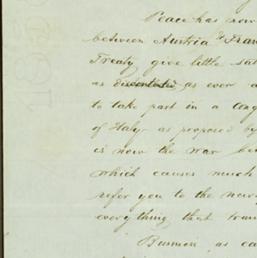 Peace has now
between Austria & Fran
Treaty give little sat
as discontented as ever a
to take part in a Cong
of Italy as proposed by
is now the war be
which causes much
refer you to the news
everything that tran
Business as ca